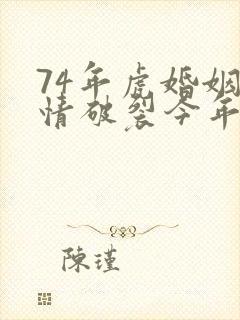 74年虎婚姻
情破裂今年
陳瑾